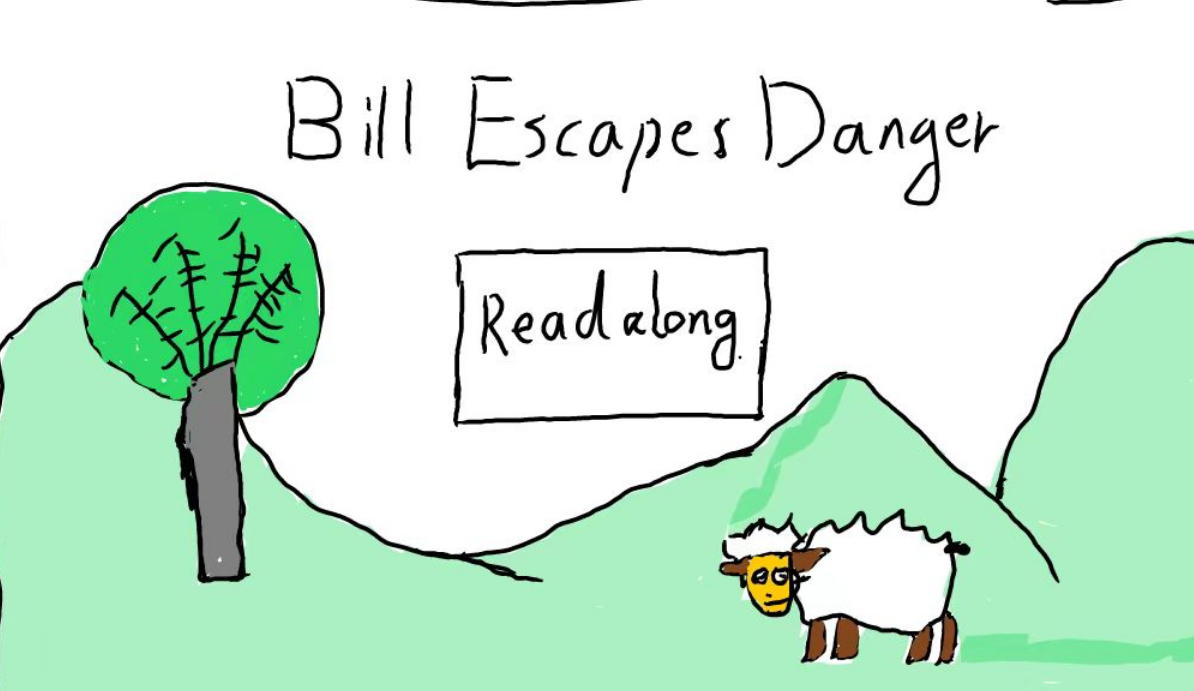 Bill Escapes Danger
Read along.